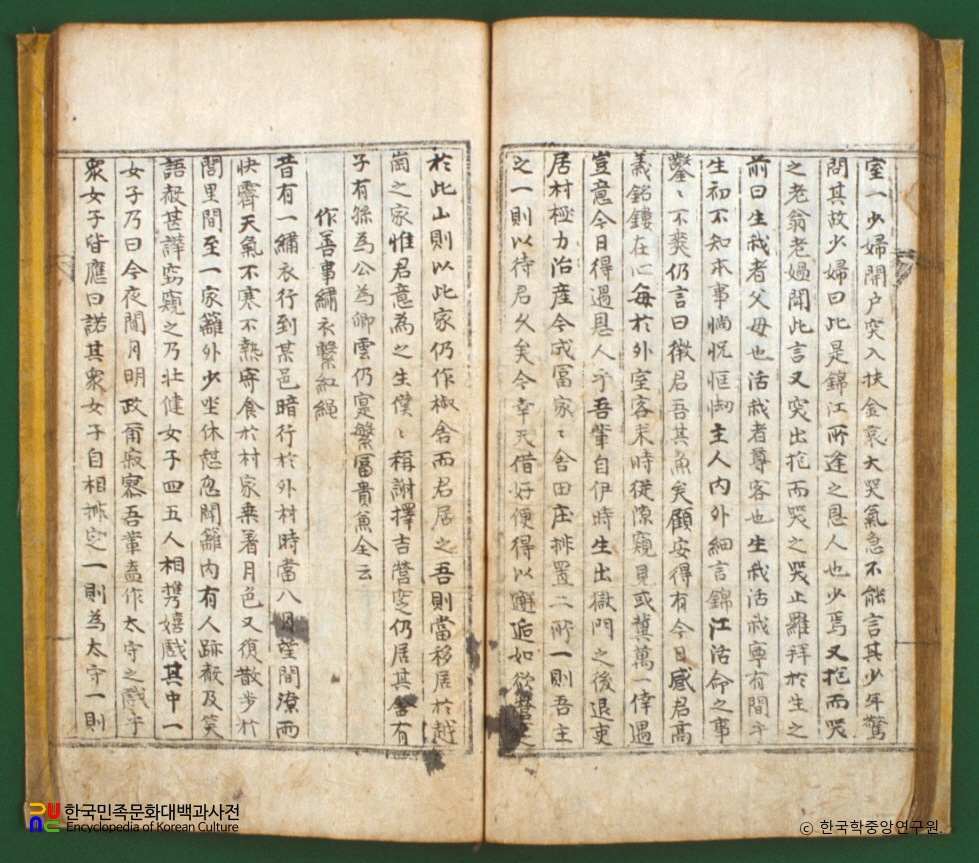 室一少婦開户突入扶金哀大哭氣急不能言其少年驚
問其故少婦曰此是錦江所逢之恩人也少焉又抱而哭
之老翁老媼聞此言又突出抱而哭之哭止羅拜於生之
前曰生我者父母也活我者尊客也生我活我寧有間乎
生初不知本事惝怳恇㤼主人内外細言錦江活命之事
鑿〻不爽仍言曰微君吾其魚矣顧安得有今日感君高
義銘鏤在心每於外室客来時從隙窺見或冀萬一倖遇
豈意今日得遇恩人乎吾輩自伊時生出獄門之後退吏
居村極力治産今成冨家〻舍田庄排置二所一則吾主
之一則以待君久矣今幸天借好便得以邂逅如欲營窆
於此山則以此家仍作楸舍而君居之吾則當移居於越
崗之家惟君意為之生僕〻稱謝擇吉營窆仍居其舍有
子有孫為公為卿雲仍寔繁冨貴兼全云
作善事繡衣繫紅繩
昔有一繡衣行到某邑暗行於外村時當八月望間潦雨
快霽天氣不寒不熱寄食於村家乗着月色又復散步於
閭里間至一家籬外少坐休憇忽聞籬内有人跡聲及笑
語聲甚譁窃窺之乃壮健女子四五人相携嬉戲其中一
女子乃曰今夜閒月明政爾寂寥吾輩盍作太守之戲乎
衆女子皆應曰諾其衆女子自相排定一則為太守一則
한국민족문화대백과사전
Encyclopedia of Korean Culture
© 한국학중앙연구원